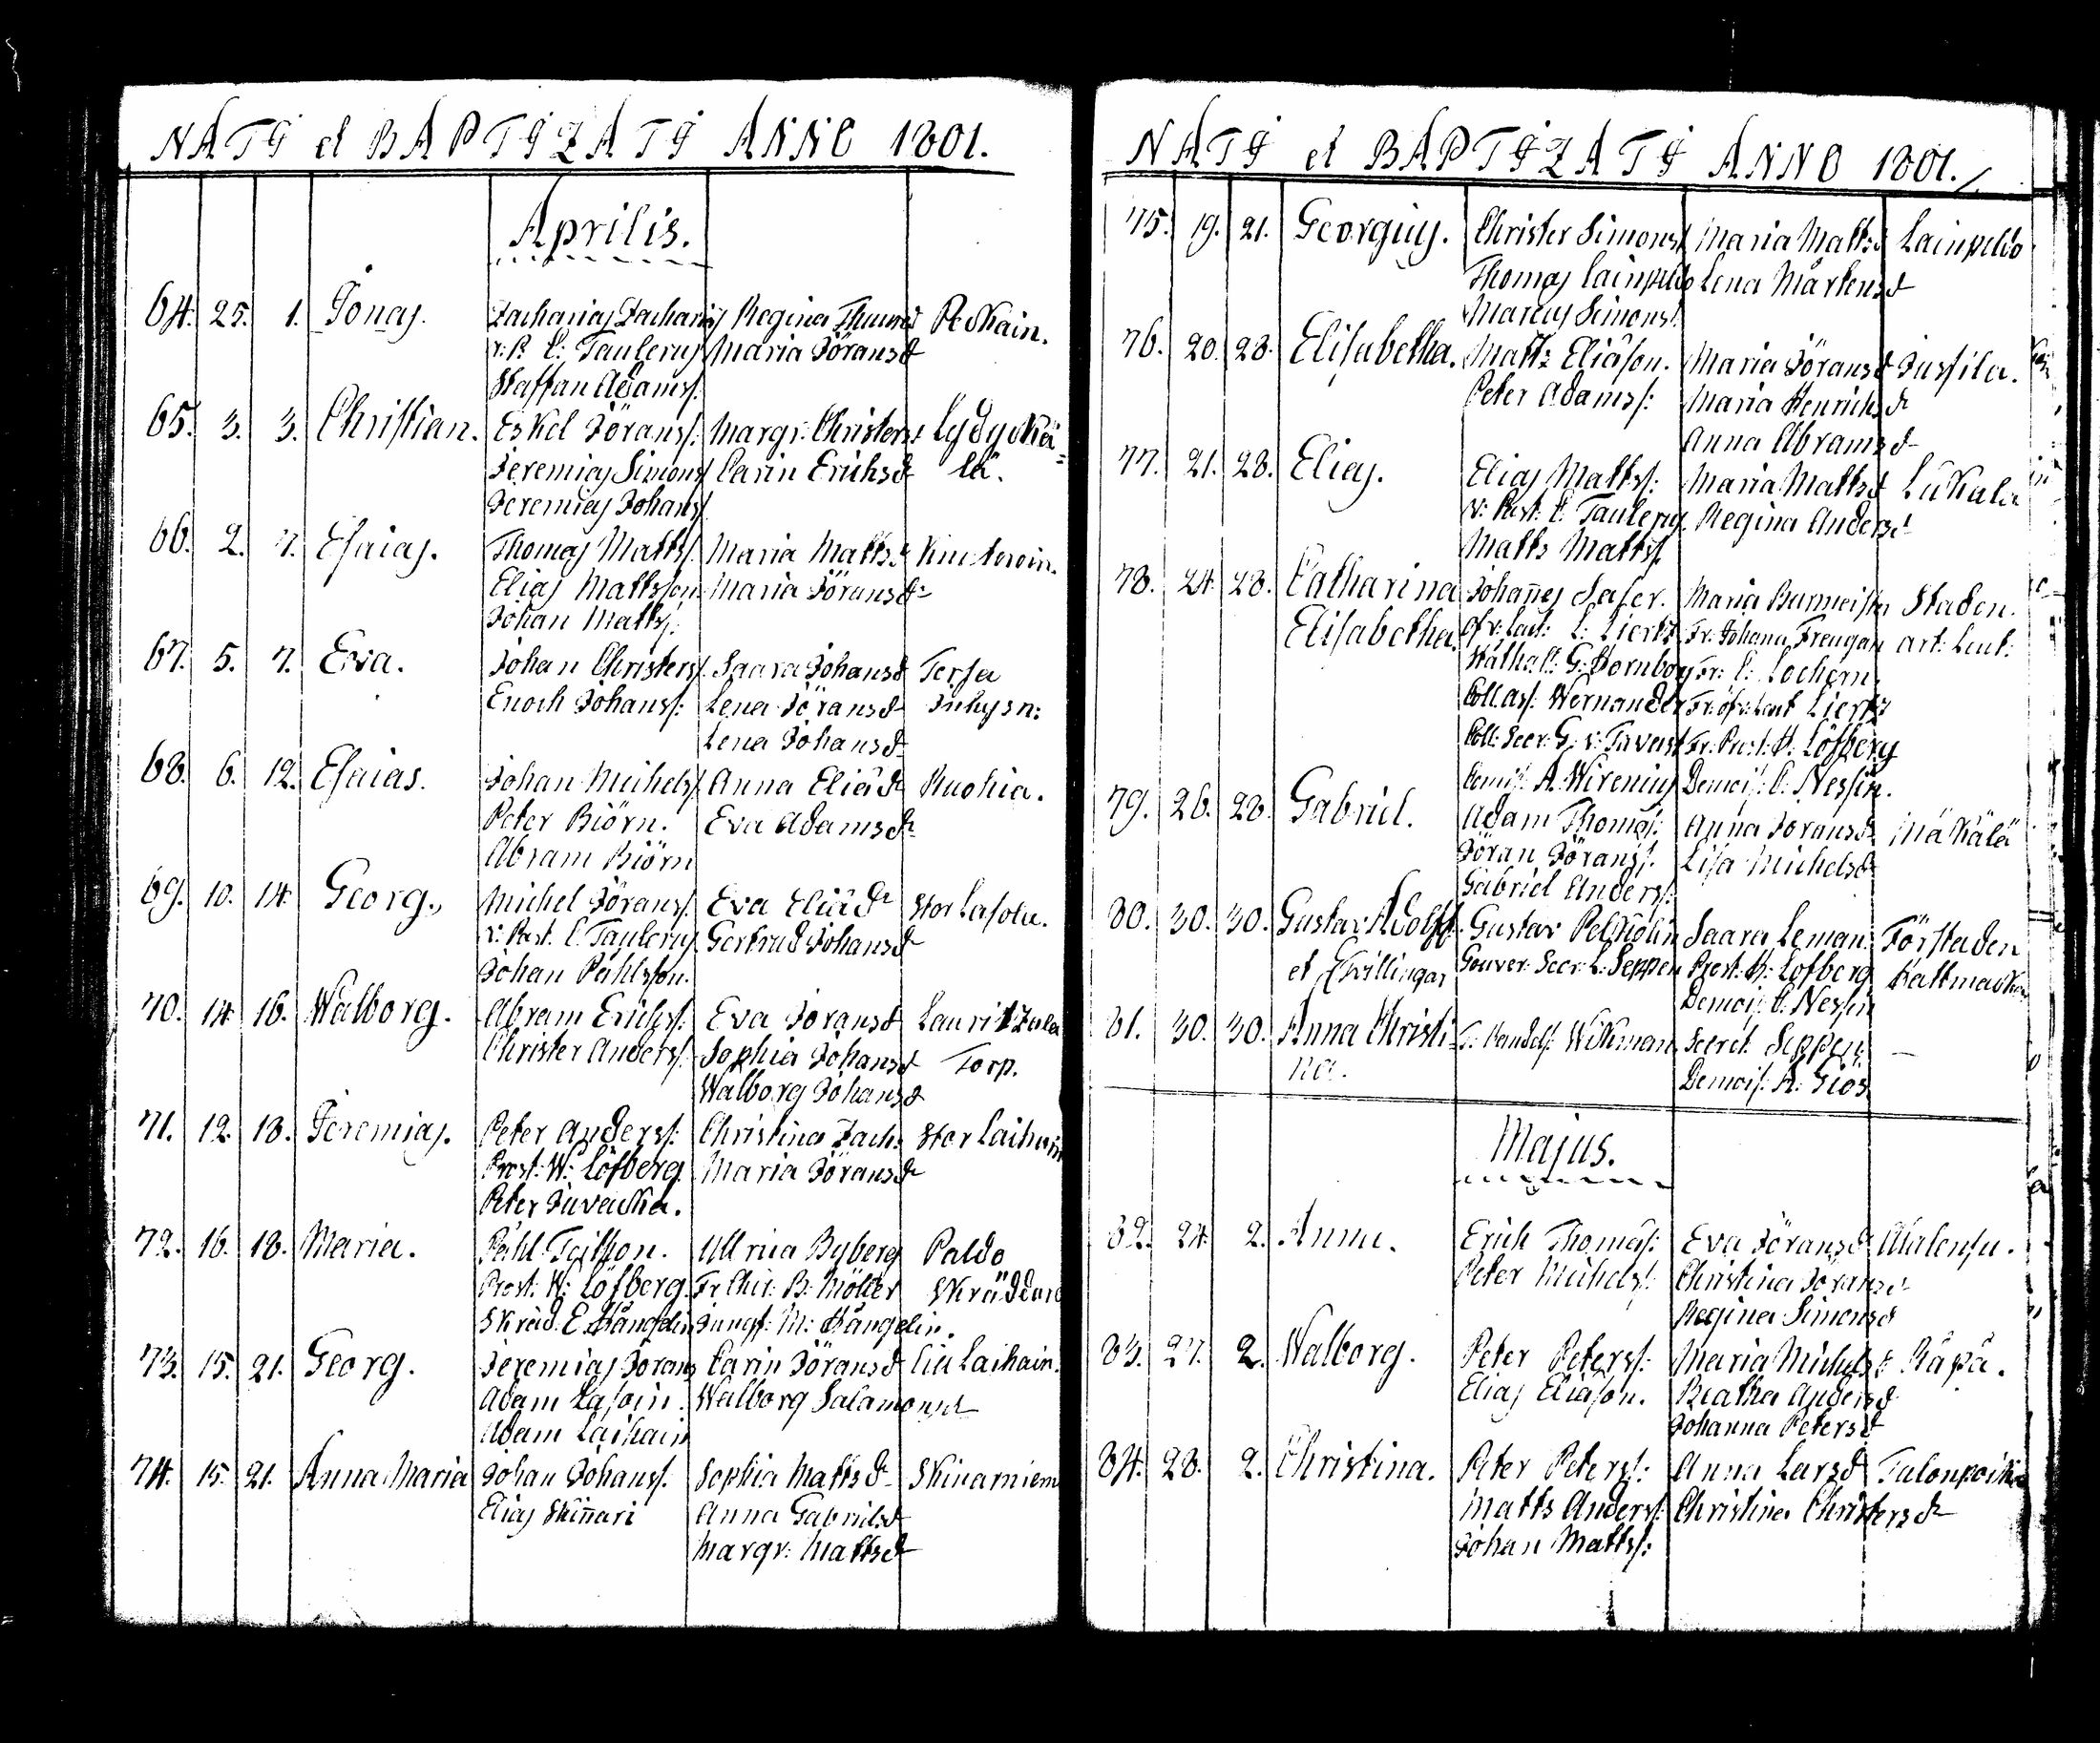 NATI et BAPTIZATI ANNO 1801.
Aprilis.
64. 25. 1. Jonas. Zacharias Zacharias Regina Thomasd Peckain.
v: P. C: Taulerus Maria Jöransd
Staffan Adamss:
65. 3. 3. Christian. Eskel Jöranss: Margr: Christersd Lydyckä=
Jeremias Simonss Carin Erichsd lä.
Jeremias Johanss
66. 2. 7. Esaias. Thomas Mattss: Maria Mattsd
Elias Mattsson Maria Jöransd
Johan Mattss:
67. 5. 7. Eva. Johan Christerss. Saara Johansd Terfa
Enoch Johanss: Lena Jöransd
Lena Johansd
68. 6. 12. Esaias. Johan Michelss Anna Eliæd Ruohia.
Peter Biörn. Eva Adamsd
Abram Biörn
69. 10. 14. Georg. Michel Jöranss. Eva Eliæd Stor Lasola.
v: Past. C. Taulerus Gertrud Johansd
Johan Pahlsson.
70. 14. 16. Walborg. Abram Erichss: Eva Joransd Lauritzala
Christer Anderss. Sophia Johansd Torp.
Walborg Johansd
71. 12. 18. Jeremias. Peter Anderss: Christina Zach: Stor Laihain
Prost: W: Löfberg. Maria Jöransd
Peter Juvacka.
72. 16. 18. Maria. Pahl Ullrica Byberg Paldo
Prost: W: Löfberg. Fr Chir: B: Möller Skräddare
Skräd. E. Hångelin Jungf: M: Hångelin.
73. 15. 21. Georg. Jeremias Jorans Carin Jöransd Lill Laihain.
Adam Lasoin. Walborg Salamonsd
Adam Laihain
74. 15. 21. Anna Maria Johan Johanss. Sophia Mattsd Skinarniem
Elias Skin̄ari Anna Gabrielsd
Margr: Mattsd
NATI et BAPTIZATI ANNO 1801.
75. 19. 21. Georgius. Christer Simonss Maria Mattsd Lainpeldo
Thomas Lainpeldo Lena Mårtensd
Marcus Simonss
76. 20. 28. Elisabetha. Matts Eliæson. Maria Jöransd Jussila.
Peter Adamss: Maria Henrichsd
Anna Abramsd
77. 21. 28. Elias. Elias Mattss: Maria Mattsd Lukala
v: Past: C. Taulerus Regina Andersd
Matts Mattss
78. 24. 28. Catharina Johan̄es Safer. Maria Burmeister Staden.
Elisabetha. Öfv: Leut: L: Lierts Fr: Johana Frengan art: Leut:
G: Hornborg Fr: C: Lochern
Coll. ass: Wernander Fr: öfv: Leut Lierts
Coll: Secr: G: v: Tavast Fr: Prost: H: Löfberg
A. Wirenius Demois: C: Nessin.
79. 26. 28. Gabriel. Adam Thomass: Anna Joransd Mäkälä
Jöran Jöranss. Lisa Michelsd
Gabriel Anderss:
80. 30. 30. Gustav Adolff. Gustav Saara Leman. Förstaden
et Tvillingar Gouver: Secr: L: Seppen Prost: H: Löfberg
Demois: C. Nessin
81. 30. 30. Anna Christi= Wikman Secret. Seppen —
na. Demois: A: Gios.
Majus.
82. 24. 2. Anna. Erich Thomass: Eva Jöransd Alalensu.
Peter Michelss: Christina Jöransd
Regina Simonsd
83. 27. 2. Walborg. Peter Peterss: Maria Michelsd Räpä.
Elias Eliæson. Beatha Andersd
Johanna Petersd
84. 28. 2. Christina. Peter Peterss: Anna Larsd Talonpoika
Matts Anderss: Christina Christersd
Johan Mattss: